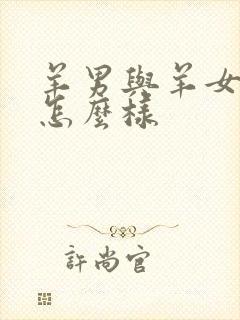 羊男與羊女
怎麼樣
許尚官